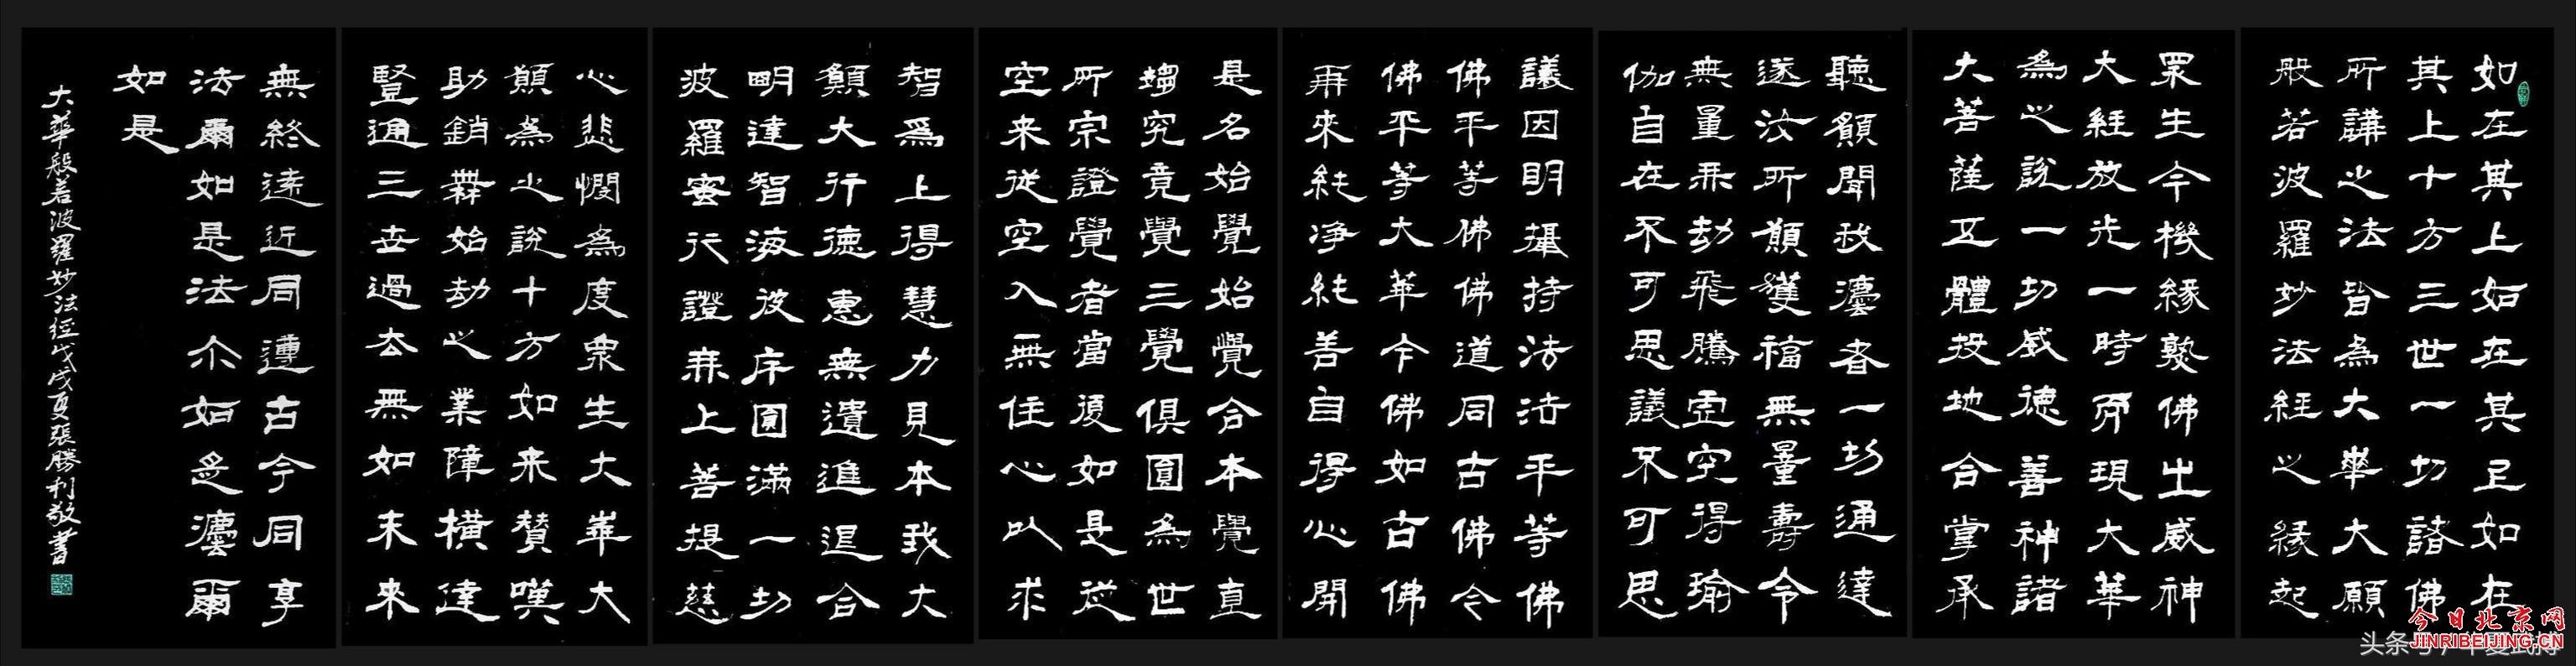 如在其上如在其上如在
其上十方三世一切諸佛
所講之法皆為大華大願
般若波羅妙法經之緣起
眾生今機緣熟佛出威神
大經放光一時齊現大華
為之說一切威德善神諸
大菩薩五體投地合掌承
聽願聞我灋者一切通達
遂汝所願獲福無量壽令
無量乘劫飛騰虛空得瑜
伽自在不可思議不可思
議因明攝持法法平等佛
佛平等佛佛道同古佛今
佛平等大華今佛如古佛
再來純淨純善自得心開
是名始覺始覺合本覺直
趨究竟覺三覺俱圓為世
所宗證覺者當復如是從
空來從空入無住心以求
智為上得慧力見本我大
願大行德惠無遺進退合
明達智海波序圓滿一切
波羅蜜行證無上菩提慈
心悲憫為度眾生大華大
願為之說十方如來贊嘆
助銷無始劫之業障橫達
豎通三世過去無如未來
無終遠近同遵古今同享
法爾如是法尒如是灋爾
如是
大華般若波羅妙法經戊戌夏張勝利敬書
今日北京网
JINRIBEIJING.CN